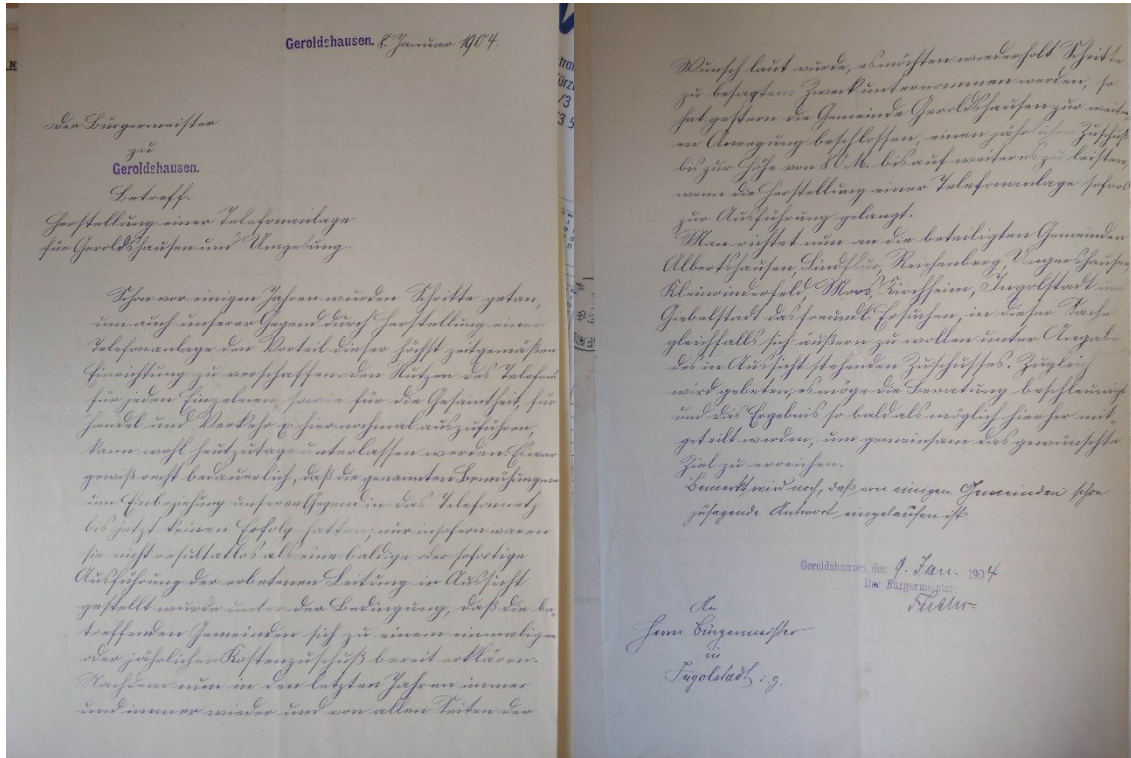 Geroldshausen. 8. Januar 1904.
Der Bürgermeister
zu
Geroldshausen.
Betreff.
Herstellung einer Telefonanlage
für Geroldshausen und Umgebung.
Schon vor einigen Jahren wurden Schritte getan,
um auch unserer Gegend durch Herstellung einer
Telefonanlage den Vorteil dieser höchst zeitgemäßen
Einrichtung zu verschaffen. Den Nutzen des Telefons
für jeden Einzelnen sowie für die Gesamtheit, für
Handel und Verkehr hier nochmal auszuführen,
kann wohl heutzutage unterlassen werden. Es war
gewiß recht bedauerlich, daß die genannten Bemühungen
um Einbeziehung unserer Gegend in das Telefonnetz
bis jetzt keinen Erfolg hatten; nur insofern waren
sie nicht resultatlos als eine baldige oder sofortige
Ausführung der erbetenen Leitung in Aussicht
gestellt wurde unter der Bedingung, daß die be-
treffenden Gemeinden sich zu einem einmaligen
oder jährlichen Kostenzuschuß bereit erklären.
Nachdem nun in den letzten Jahren immer
und immer wieder und von allen Seiten der
Wunsch laut wurde, es möchten wiederholt Schritte
zu besagtem Zweck unternommen werden, so
hat gestern die Gemeinde Geroldshausen zur weiter-
en Anregung beschlossen, einen jährlichen Zuschuß
bis zur Höhe von 80 M. bis auf weiteres zu leisten,
wenn die Herstellung einer Telefonanlage sofort
zur Ausführung gelangt.
Man richtet nun an die beteiligten Gemeinden
Albertshausen, Lindflur, Reichenberg, Ungershausen,
Kleinrinderfeld, Moos, Kirchheim, Ingolstadt und
Giebelstadt das freundl. Ersuchen, in dieser Sache
gleichfalls sich äußern zu wollen unter Angabe
des in Aussicht stehenden Zuschusses. Zugleich
wird gebeten, es möge die Beratung beschleunigt
und das Ergebnis so bald als möglich hierher mit-
geteilt werden, um gemeinsam das gewünschte
Ziel zu erreichen.
Bemerkt wird noch, daß von einigen Gemeinden schon
zusagende Antwort eingelaufen ist
Geroldshausen, den 9. Jan. 1904
Der Bürgermeister:
An
Herrn Bürgermeister
in
Ingolstadt